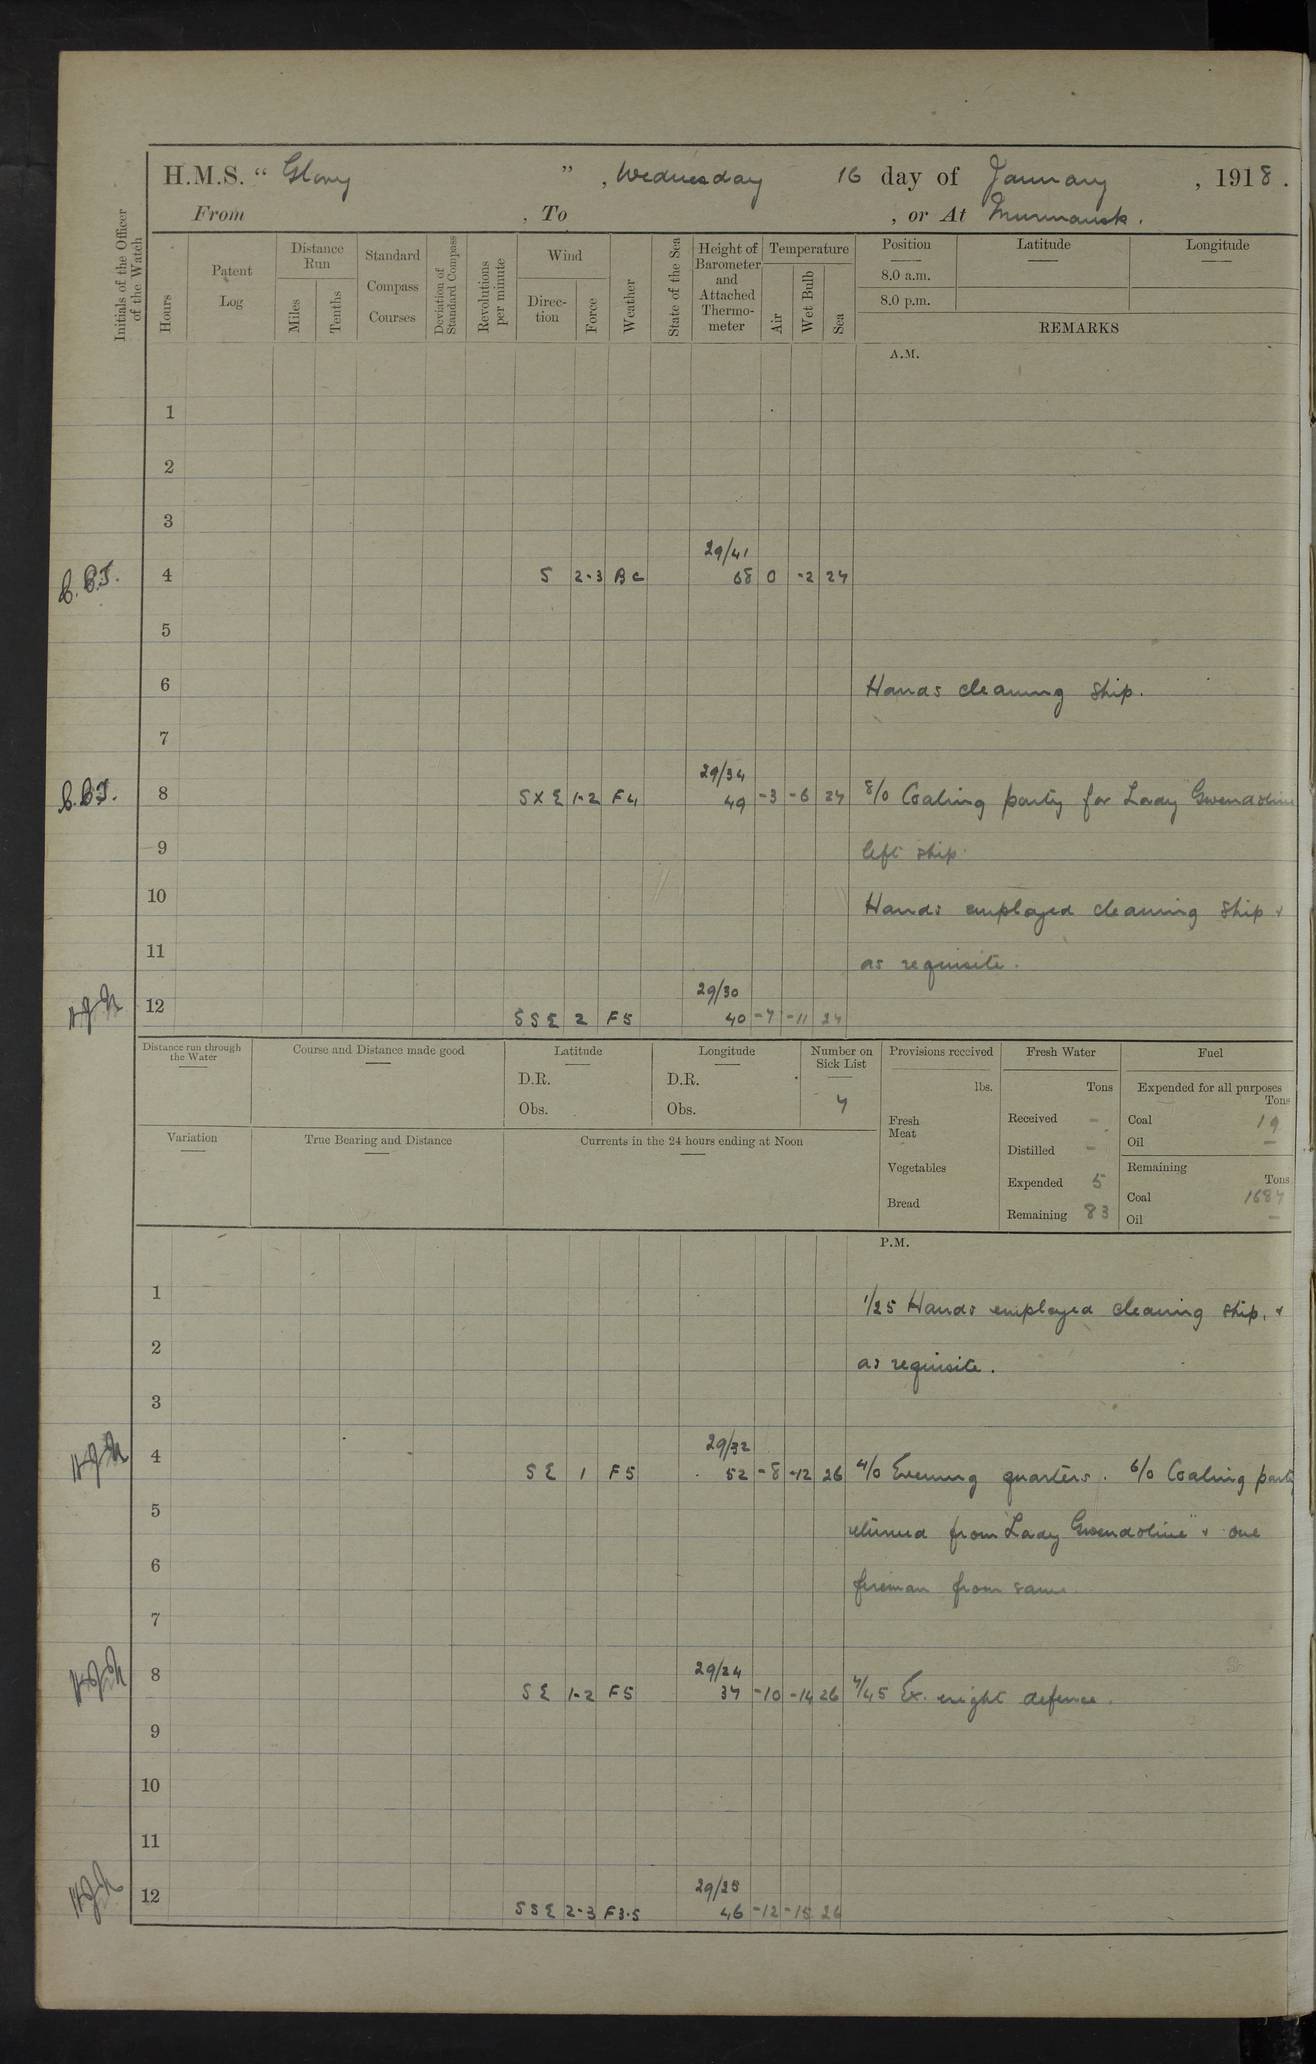 H.M.S. “ Glory ” , Wednesday 16 day of January , 1918 .
From , To , or At Murmansk .
Initials of the Officer of the Watch
Hours
Patent Log
Distance Run
Miles
Tenths
Standard Compass Courses
Deviation of Standard Compass
Revolutions per minute
Wind
Direc- tion
Force
Weather
State of the Sea
Height of Barometer and Attached Thermo- meter
Temperature
Air
Wet Bulb
Sea
Position
8.0 a.m.
8.0 p.m.
Latitude
Longitude
REMARKS
A.M.
1
2
3
29/41
4 S 2-3 BC 68 0 -2 27
5
6 Hands cleaning ship.
7
29/34
8 SXE 1-2 F4 49 -3 -6 27 8/0 Coaling party for Lady Gwendoline
9 left ship.
10 Hands employed cleaning ship &
11 as requisite.
29/30
12 SSE 2 F5 40 -7 -11 27
Distance run through the Water
Course and Distance made good
Latitude
D.R.
Obs.
Longitude
D.R.
Obs.
Number on Sick List
7
Provisions received
lbs.
Fresh Meat
Vegetables
Bread
Fresh Water
Tons
Received -
Distilled -
Expended 5
Remaining 83
Fuel
Expended for all purposes
Tons
Coal 19
Oil —
Remaining
Tons
Coal 1687
Oil —
Variation
True Bearing and Distance
Currents in the 24 hours ending at Noon
P.M.
1 1/25 Hands employed cleaning ship, &
2 as requisite.
3
29/32
4 SE 1 F5 52 -8 -12 26 4/0 Evening quarters. 6/0 Coaling party
5 returned from "Lady Gwendoline" & one
6 fireman from same.
7
29/24
8 SE 1-2 F5 37 -10 -14 26 7/45 Ex. night defence.
9
10
11
29/25
12 SSE 2-3 F3.5 46 -12 -15 26